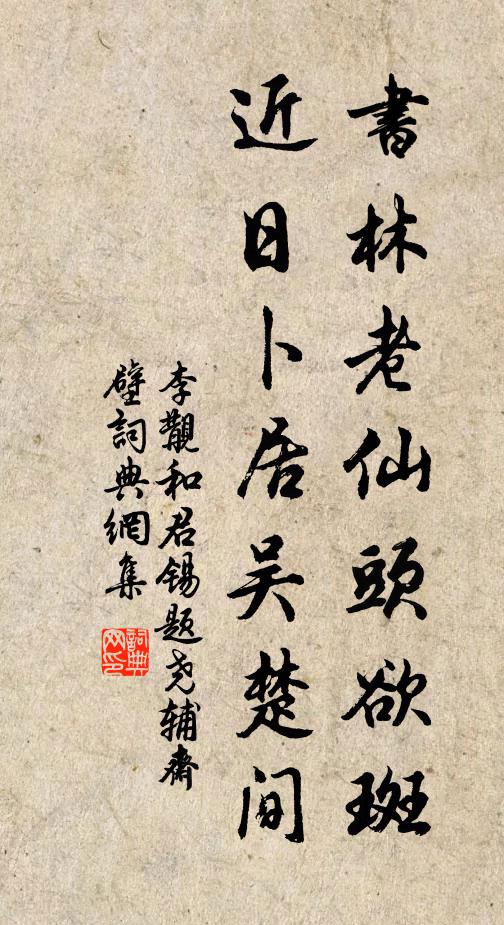 書林老仙頭欲斑
近日卜居吴楚间
李觀和君锡题尧辅斋
壁詞典網集
詞典网印